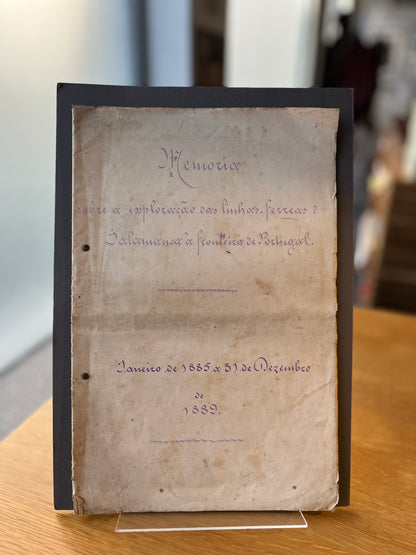 Memoria
sobre a exploração das linhas ferreas de
Salamanca á fronteira de Portugal.
Janeiro de 1885 a 31 de Dezembro
de
1889.